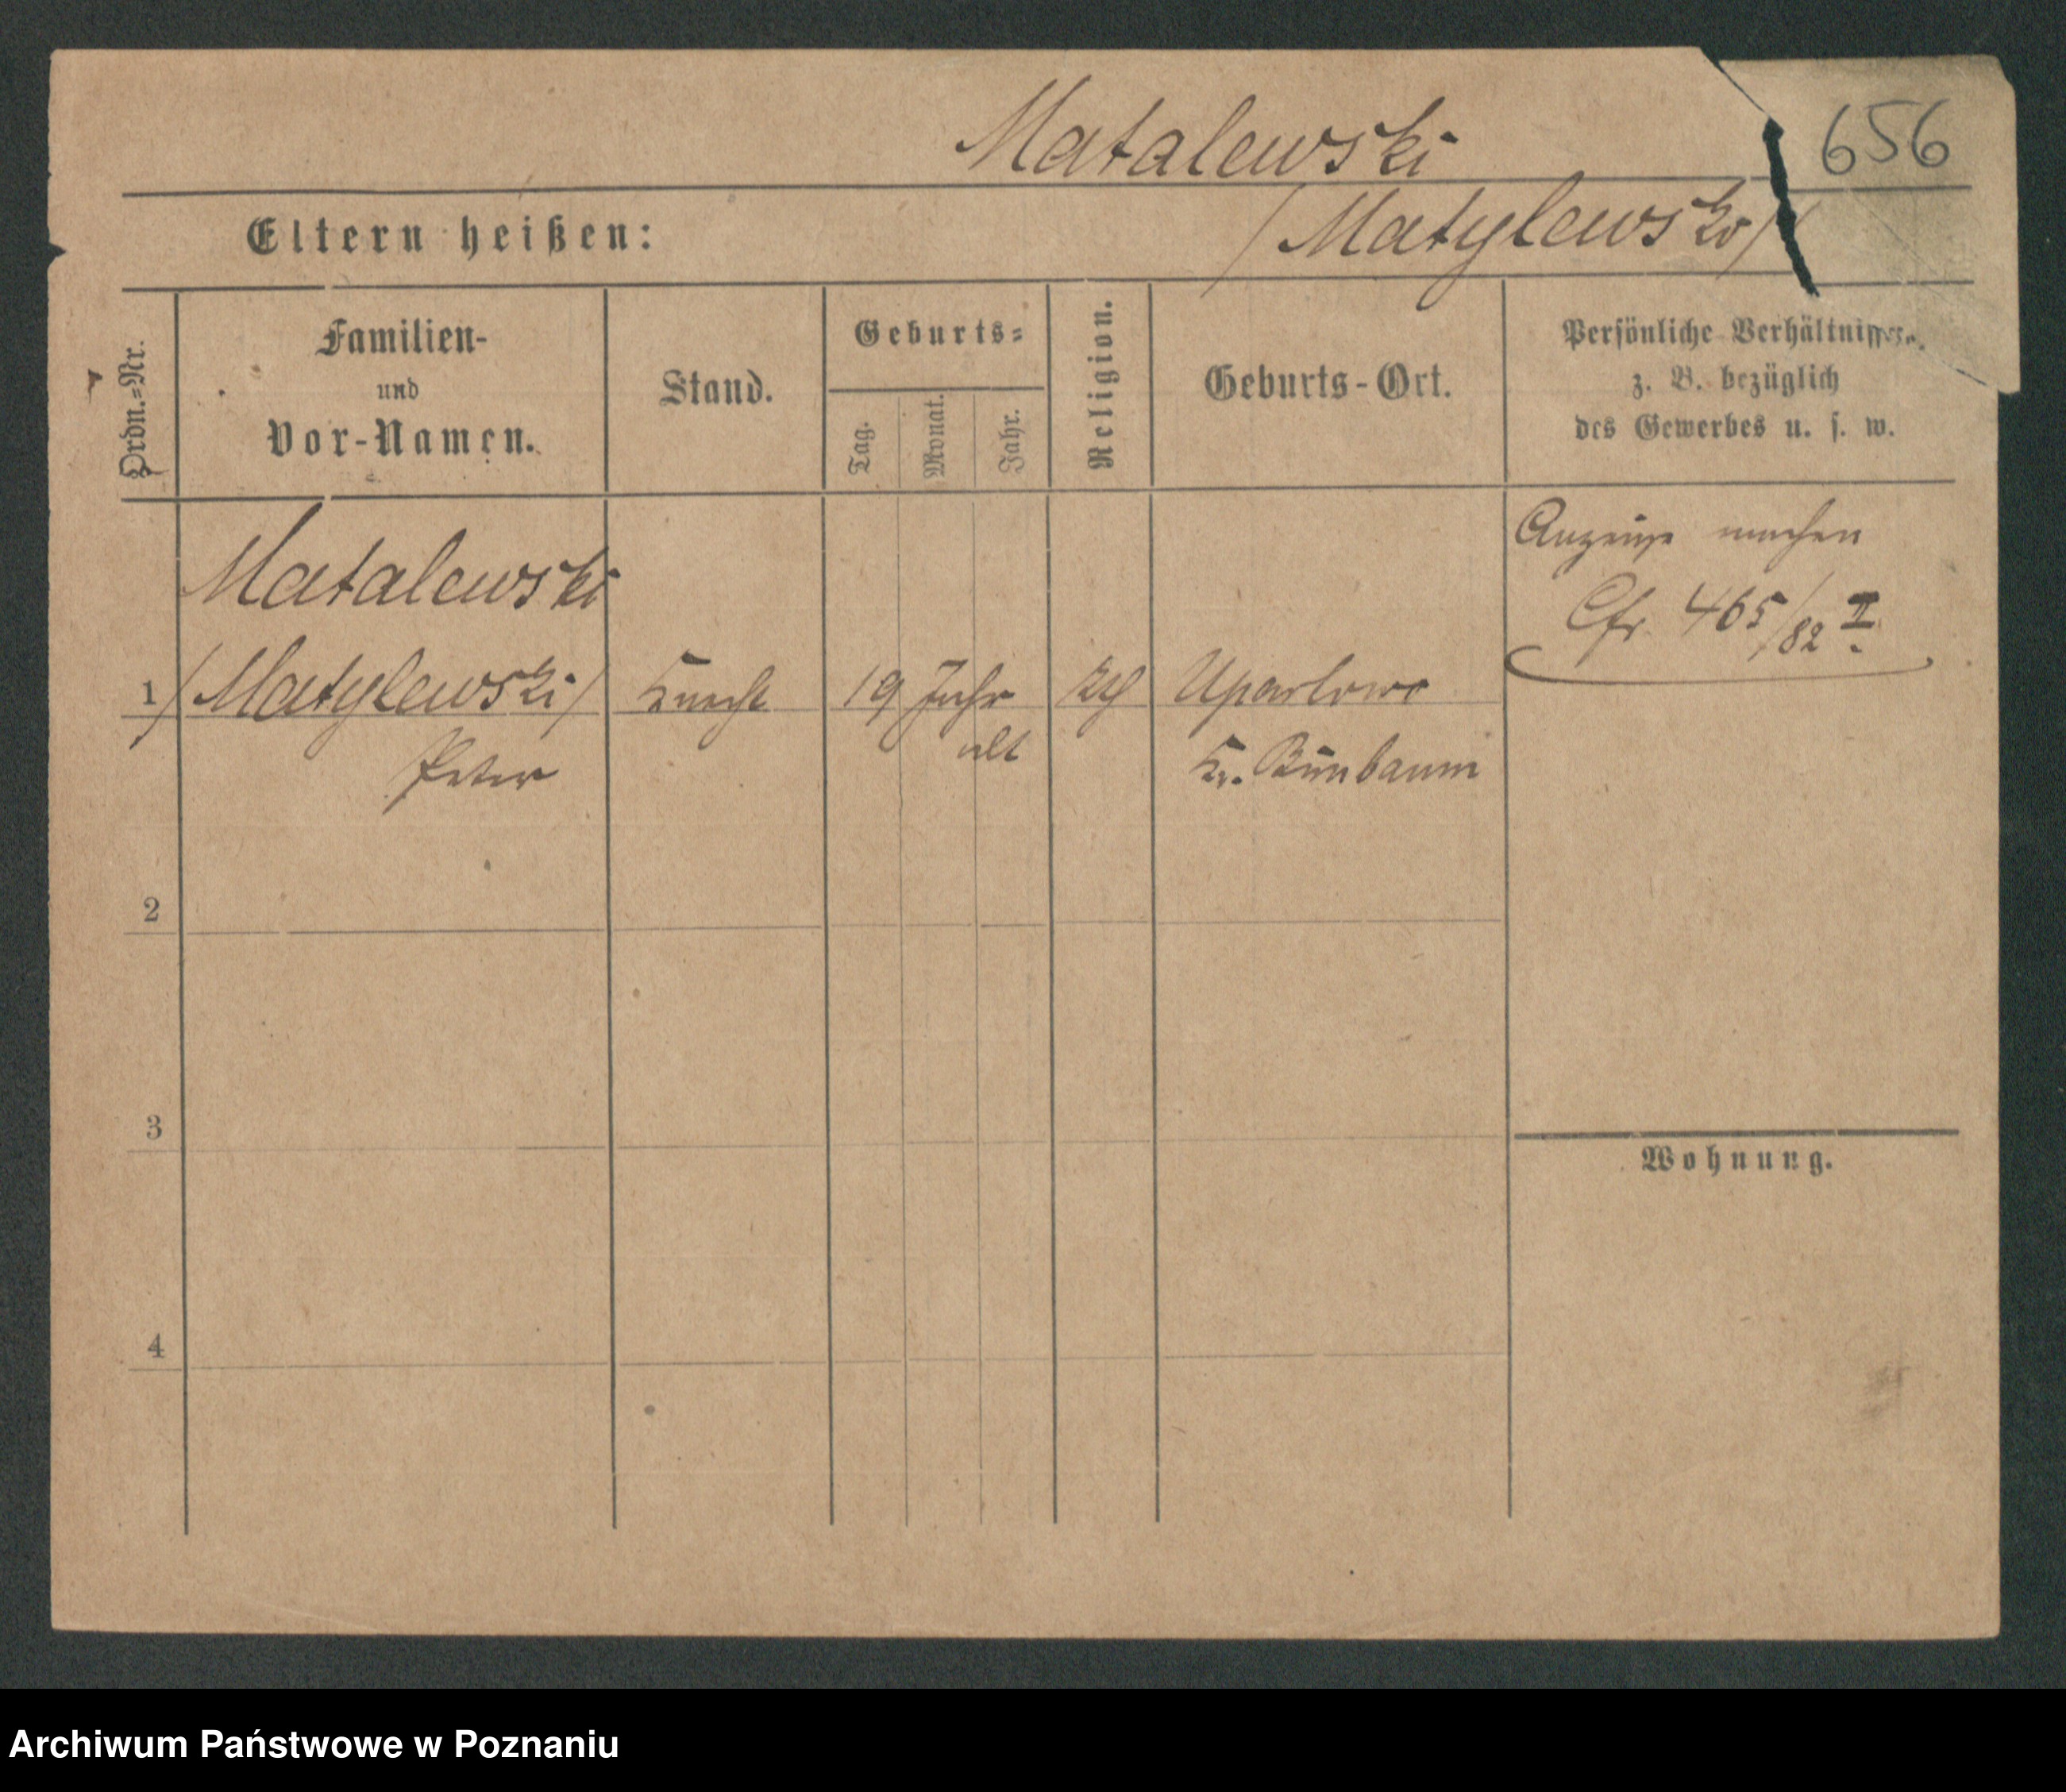 656
Matalewski
Eltern heißen:
/Matylewski/
Ordn.=Nr.
Familien-
und
Vor-Namen.
Stand.
Geburts=
Tag.
Monat.
Jahr.
Religion.
Geburts-Ort.
Persönliche Verhältnisse,
z. B. bezüglich
des Gewerbes u. s. w.
Matalewski
1 /Matylewski/ Knecht 19 Jahr
alt
Peter
Kr. Birnbaum
Anzeige machen
Cfr. 465/82 II.
2
3
4
Wohnung.
Archiwum Państwowe w Poznaniu